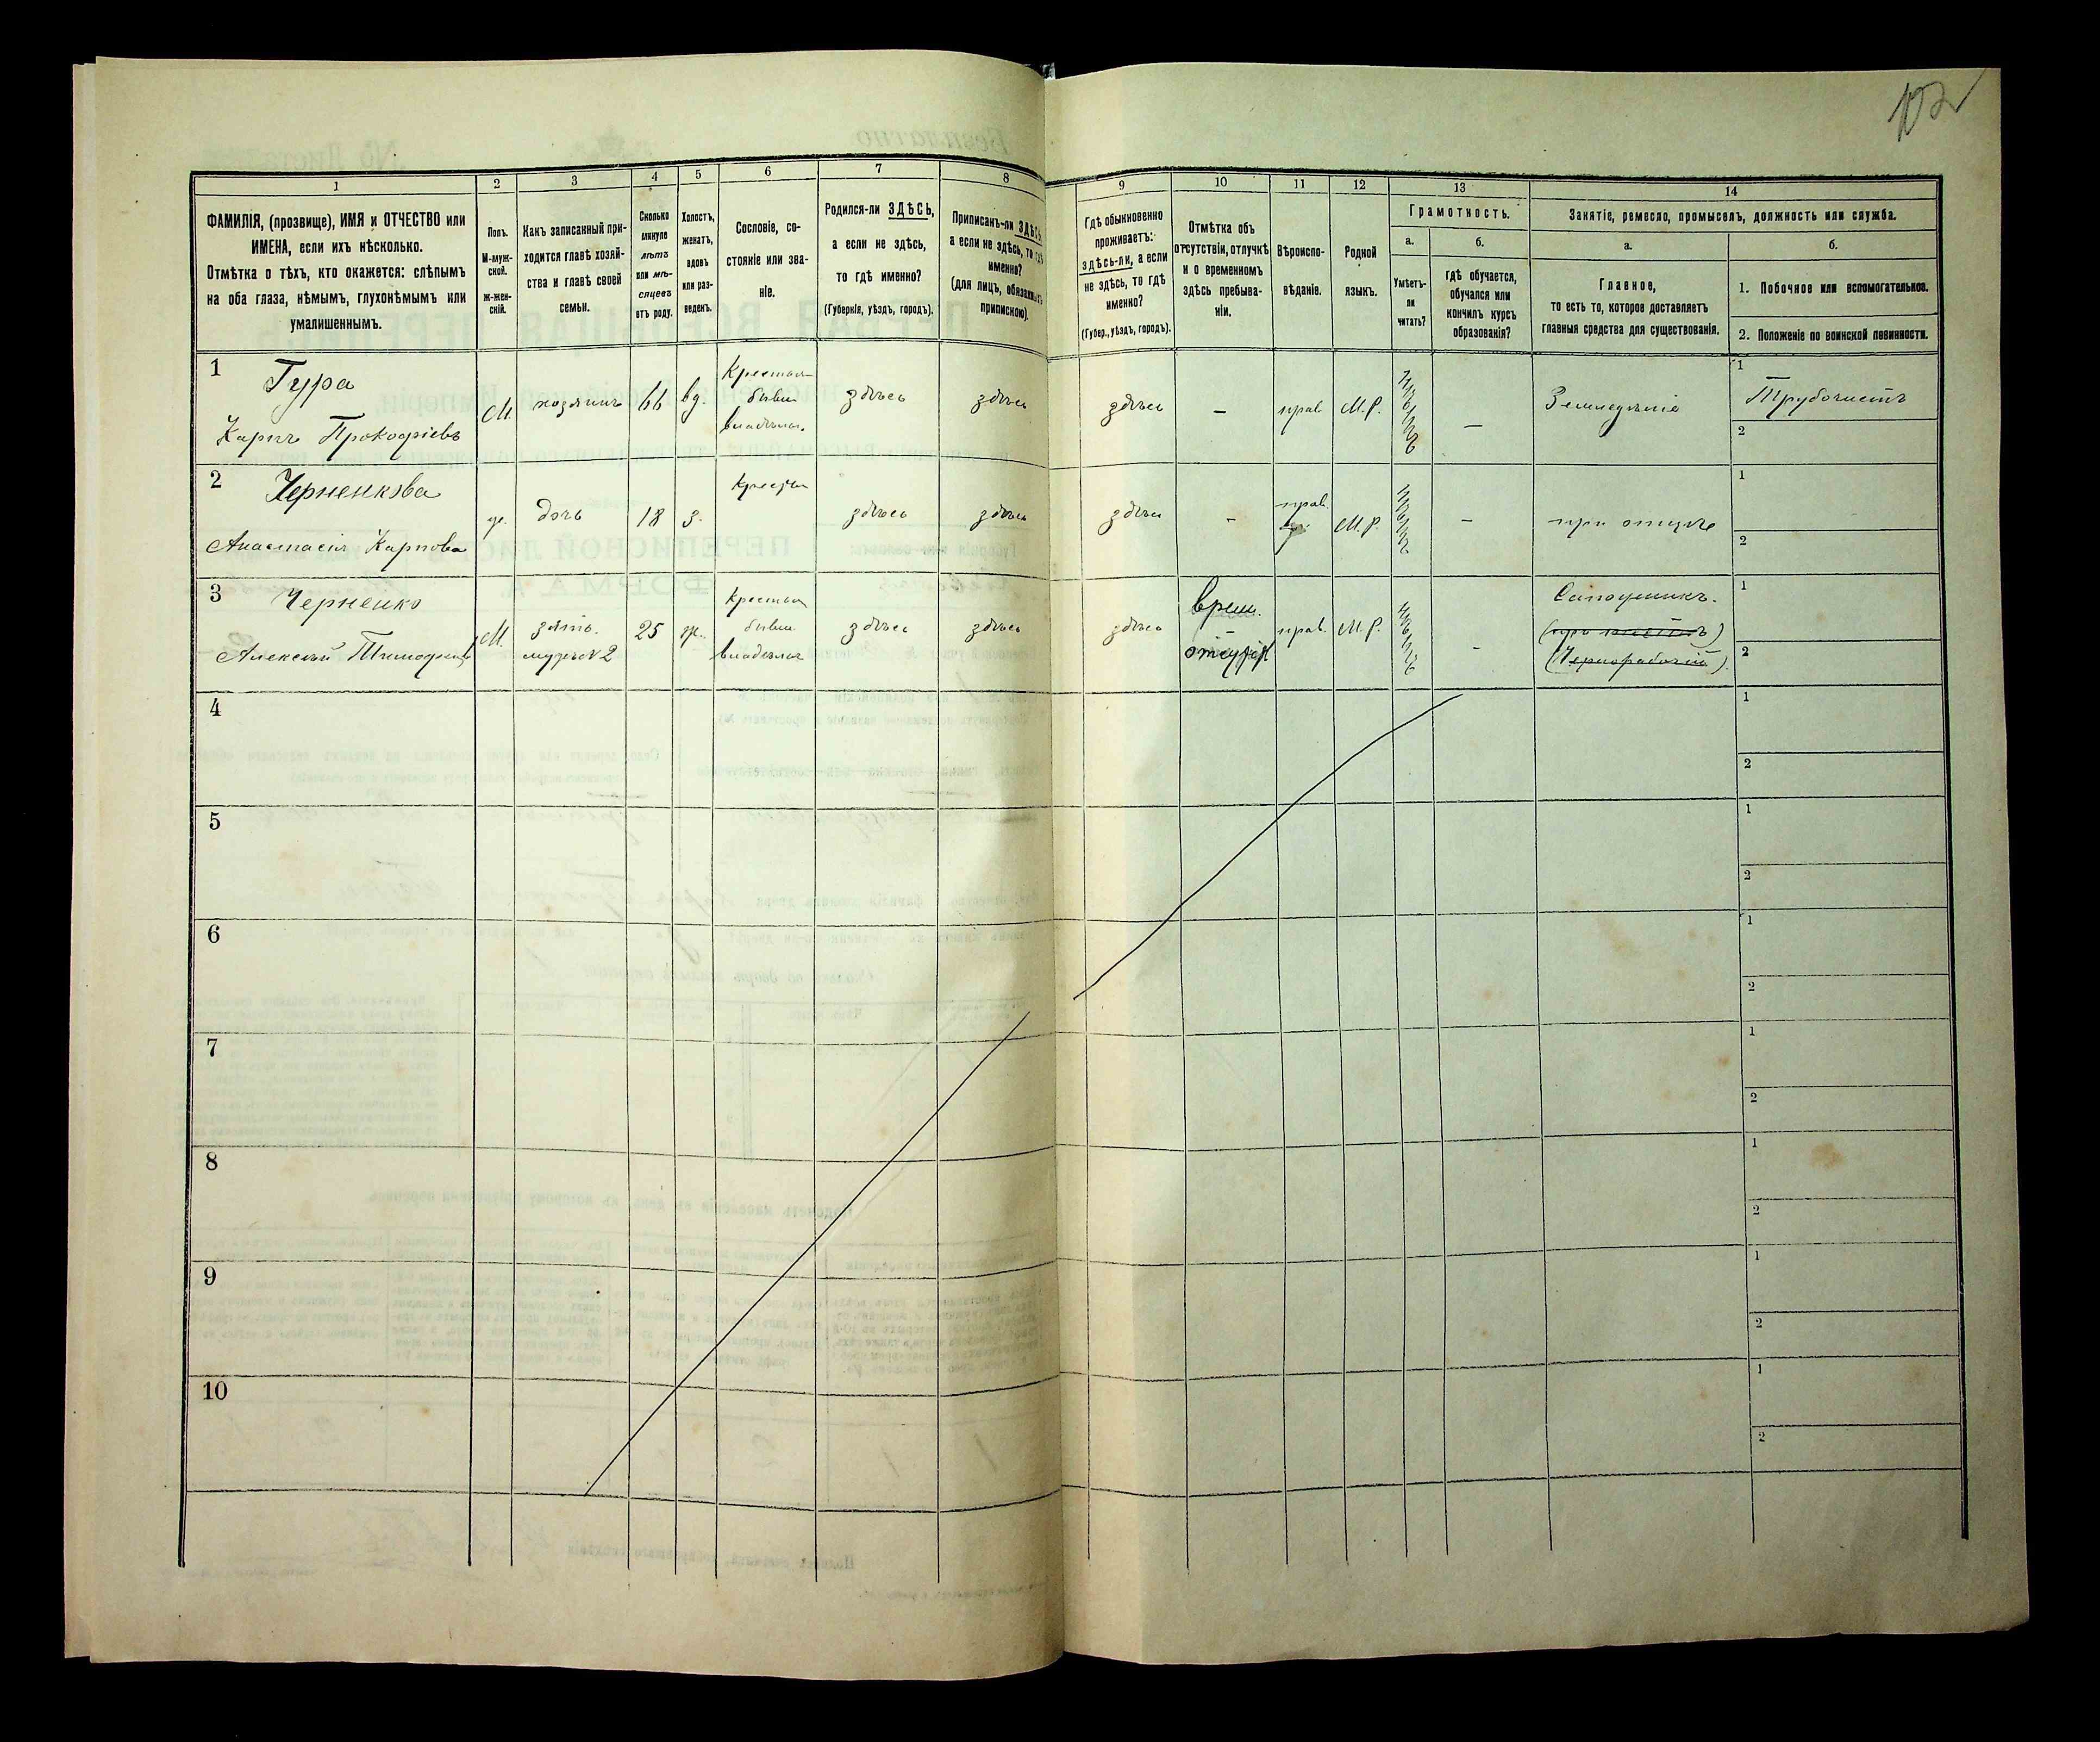 102
1 2 3 4 5 6 7 8 9 10 11 12 13 14
ФАМИЛІЯ, (прозвище), ИМЯ и ОТЧЕСТВО или
ИМЕНА, если ихъ нѣсколько.
Отмѣтка о тѣхъ, кто окажется: слѣпымъ
на оба глаза, нѣмымъ, глухонѣмымъ или
умалишеннымъ.
Полъ.
М-муж-
ской.
ж-жен-
скій.
Какъ записанный при-
ходится главѣ хозяй-
ства и главѣ своей
семьи.
Сколько
минуло
лѣтъ
или мѣ-
сяцевъ
отъ роду.
Холостъ,
женатъ,
вдовъ
или раз-
веденъ.
Сословіе, со-
стояніе или зва-
ніе.
Родился-ли ЗДѢСЬ,
а если не здѣсь,
то гдѣ именно?
(Губернія, уѣздъ, городъ).
Приписанъ-ли ЗДѢСЬ,
а если не здѣсь, то гдѣ
именно?
(для лицъ, обязанныхъ
припискою).
Гдѣ обыкновенно
проживаетъ:
здѣсь-ли, а если
не здѣсь, то гдѣ
именно?
(Губер., уѣздъ, городъ).
Отмѣтка объ
отсутствіи, отлучкѣ
и о временномъ
здѣсь пребыва-
ніи.
Вѣроиспо-
вѣданіе.
Родной
языкъ.
Грамотность.
а.
Умѣетъ-
ли
читать?
б.
гдѣ обучается,
обучался или
кончилъ курсъ
образованія?
Занятіе, ремесло, промыселъ, должность или служба.
а.
Главное,
то есть то, которое доставляетъ
главныя средства для существованія.
б.
1. Побочное или вспомогательное.
2. Положеніе по воинской повинности.
1 Гура
Карпъ Прокофіевъ
М. хозяинъ 66 вд.
Крестьян
бывш
владѣльч.
здѣсь здѣсь здѣсь — прав. М.Р. нѣтъ — Земледѣліе
1 Трубочистъ
2
2 Черненкова
Анастасія Карпова
ж. дочь 18 з. Крестьян здѣсь здѣсь здѣсь - прав. М.Р. нѣтъ — при отцѣ
1
2
3 Черненко
Алексѣй Тимофеев
М. зять.
мужъ №2
25 ж.
Крестьян
бывш.
владѣльч
здѣсь здѣсь здѣсь
врем.
отсутст
прав. М.Р. нѣтъ -
Сапожникъ.
(Чернорабочій).
1
2
4 1
2
5 1
2
6 1
2
7 1
2
8 1
2
9 1
2
10 1
2